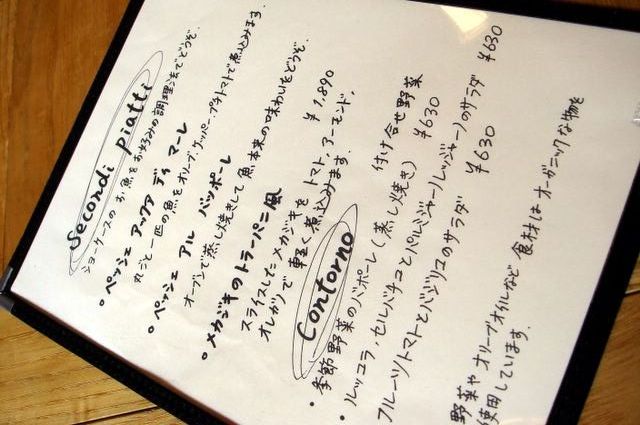 Secondi piatti
ショーケースのお魚をお好みの調理法でどうぞ.
• ペッシェ アックア ディ マーレ
丸ごと一匹の魚をオリーブ、ケッパー、プチトマトで煮込みます.
• ペッシェ アル バッポーレ
オーブンで蒸し焼きして 魚本来の味わいをどうぞ.
• メカジキのトラーパニ風 ¥1,890
スライスしたメカジキを トマト, アーモンド,
オレガノで 軽く煮込みます.
Contorno 付け合せ野菜
• 季節野菜のバポーレ(蒸し焼き) ¥630
• ルッコラ, セルバチコとパルミジャーノレッジャーノのサラダ ¥630
フルーツトマトとバジリコのサラダ ¥630
野菜や オリーブオイルなど 食材は オーガニックな物を
使用しています.